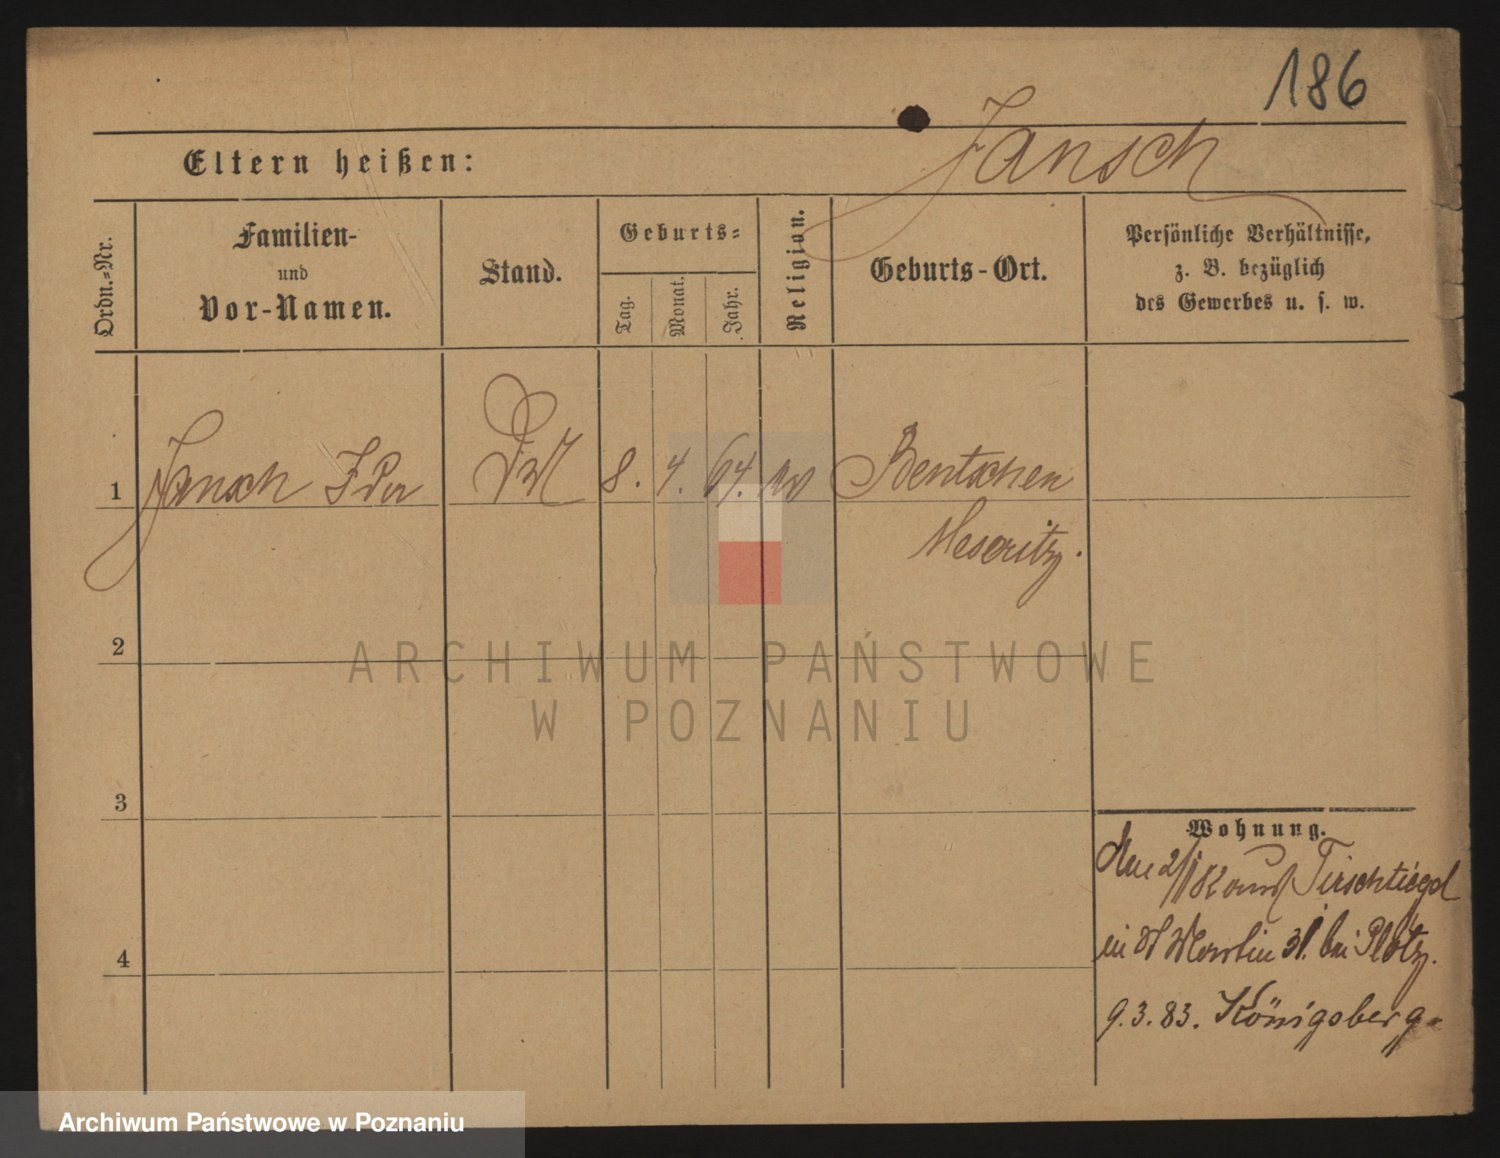 186
Jansch
Eltern heißen:
Ordn.-Nr.
Familien-
und
Vor-Namen.
Stand.
Geburts-
Tag.
Monat.
Jahr.
Religion.
Geburts-Ort.
Persönliche Verhältnisse,
z. B. bezüglich
des Gewerbes u. s. w.
1 Jansch Ida 8. 4. 64. Bentschen
Meseritz.
2
3
4
ARCHIWUM PAŃSTWOWE
W POZNANIU
Wohnung.
2/1 Tirschtiegel
St Martin 31. bei Plötz.
9.3.83. Königsberg.
Archiwum Państwowe w Poznaniu